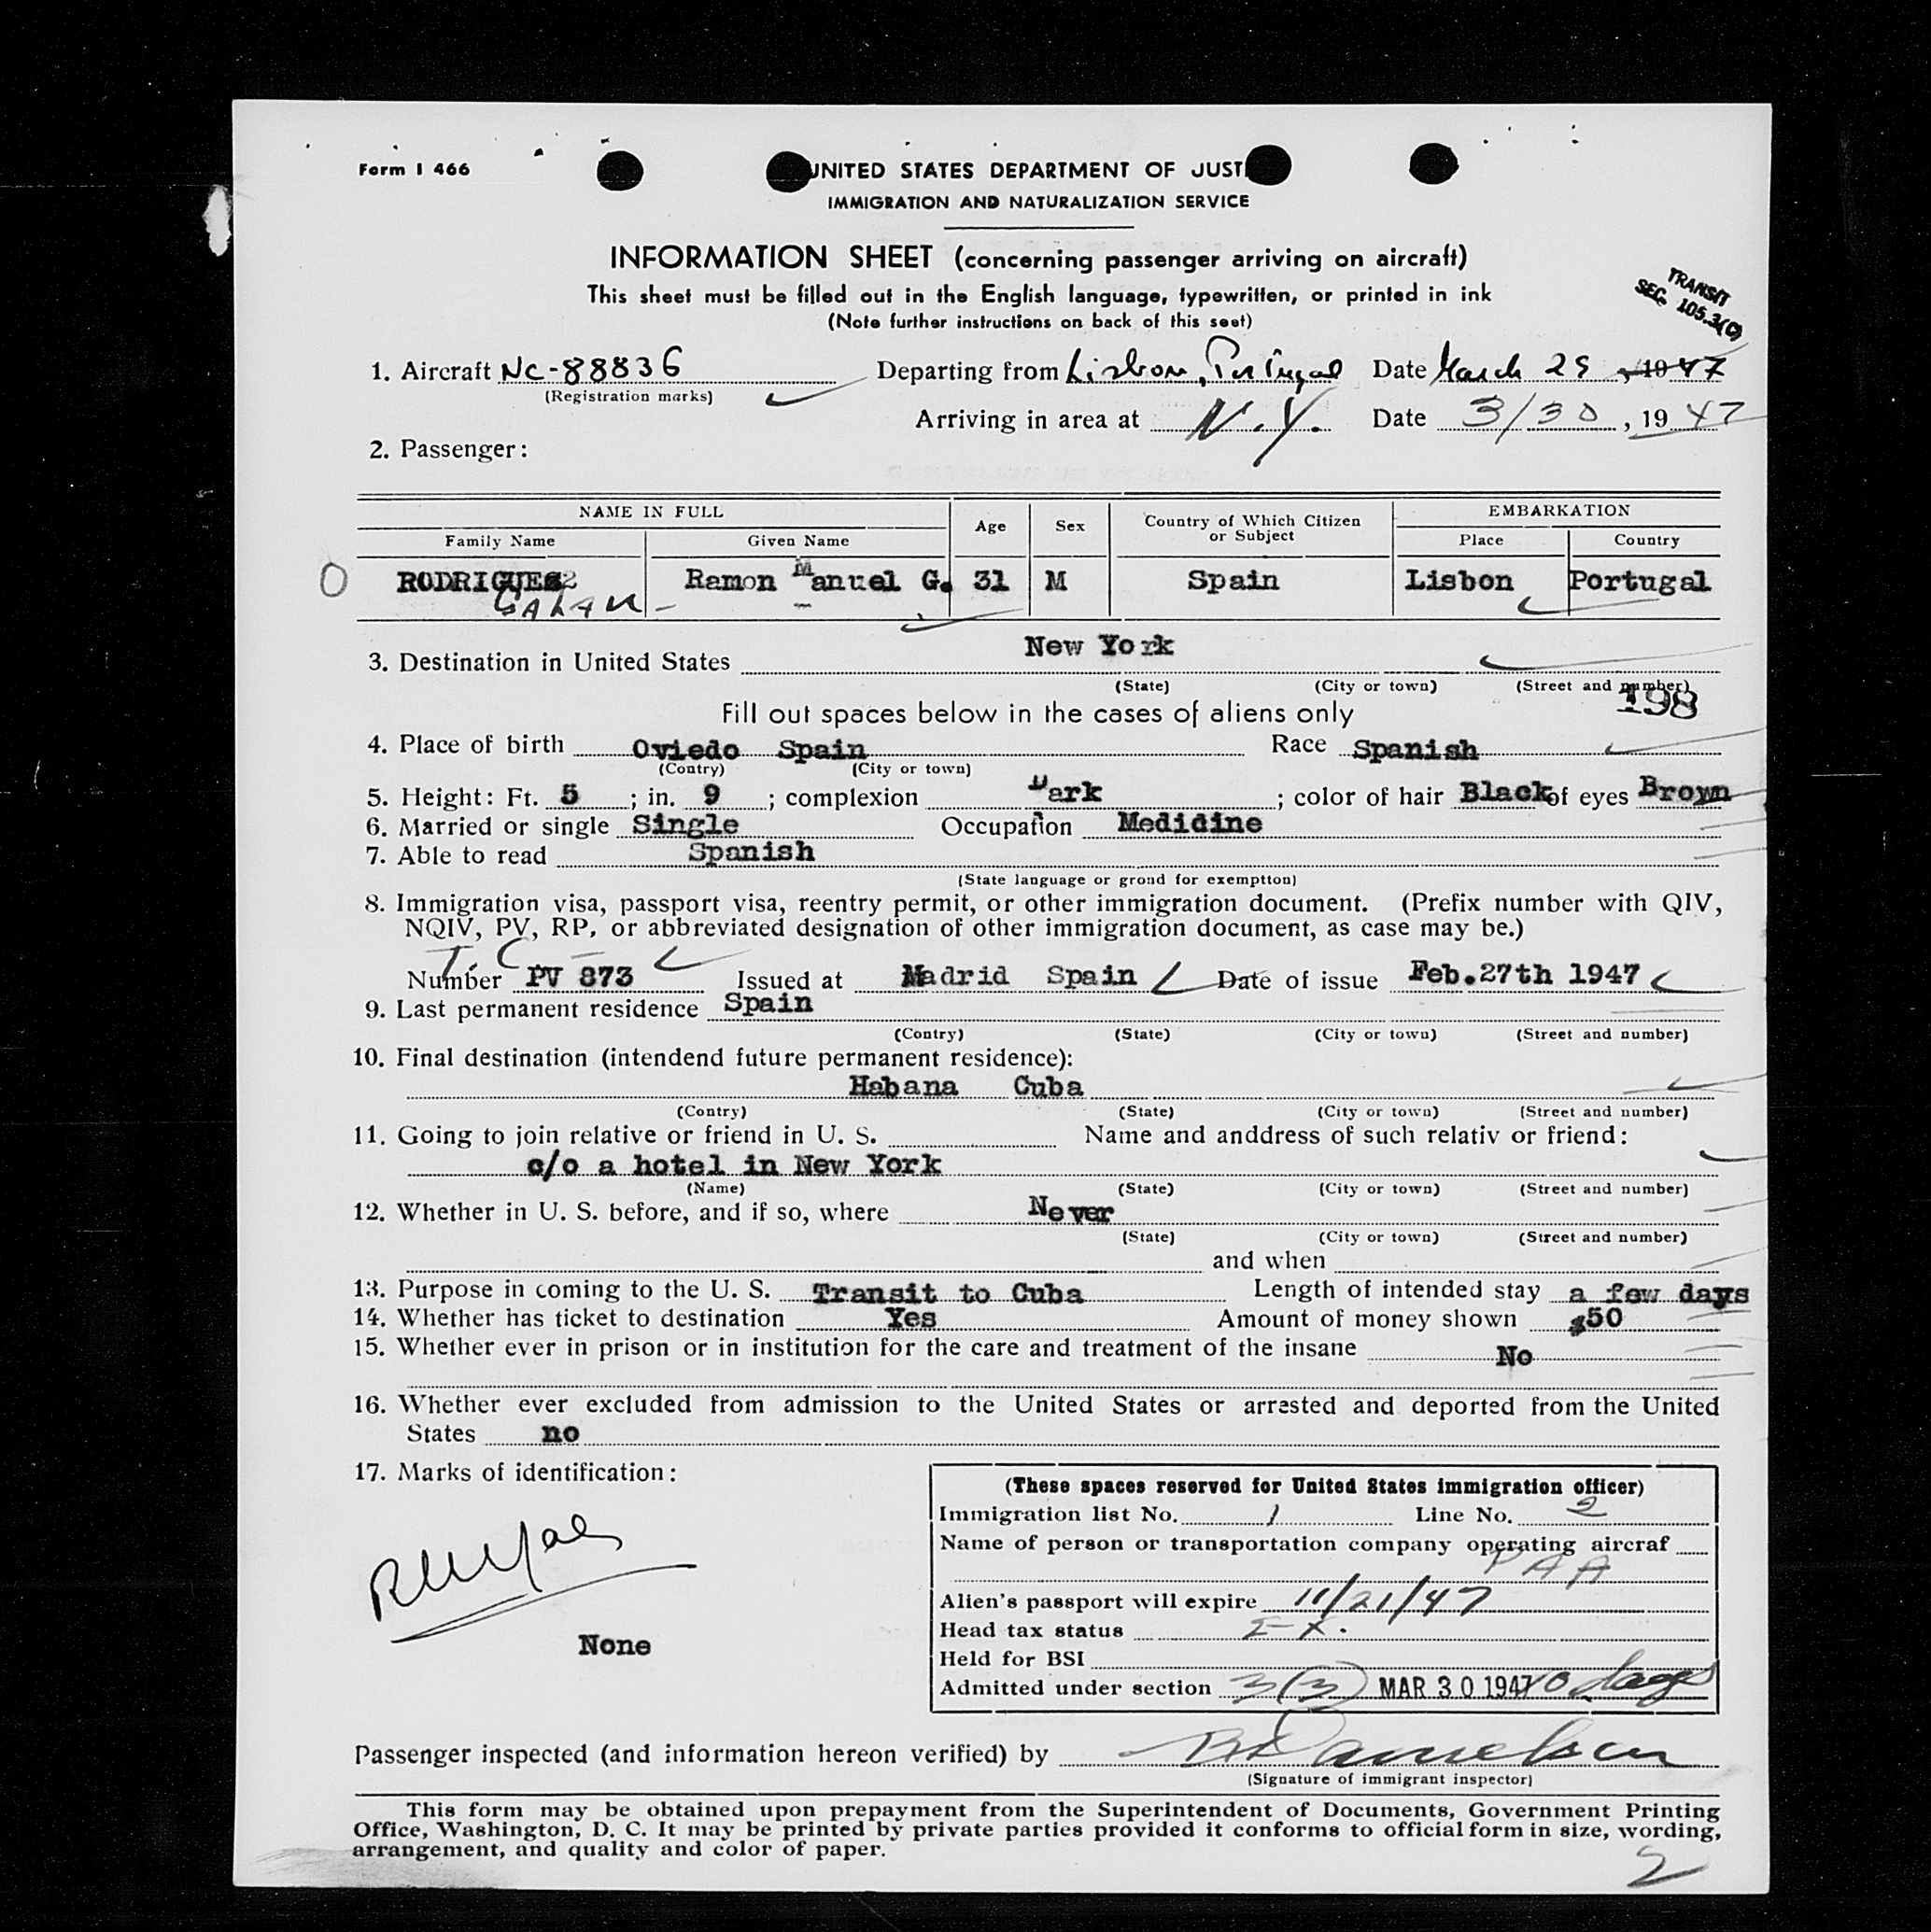 Form I 466
UNITED STATES DEPARTMENT OF JUST
IMMIGRATION AND NATURALIZATION SERVICE
INFORMATION SHEET (concerning passenger arriving on aircraft)
This sheet must be filled out in the English language, typewritten, or printed in ink
(Note further instructions on back of this seet)
TRANSIT
SEC. 105.3(C)
1. Aircraft NC-88836 Departing from Lisbon, Portugal Date March 29, 1947
(Registration marks)
Arriving in area at N.Y. Date 3/30, 1947
2. Passenger:
NAME IN FULL Age Sex Country of Which Citizen or Subject EMBARKATION
Family Name Given Name Place Country
RODRIGUEZ Ramon Manuel G. 31 M Spain Lisbon Portugal
GALAN -
3. Destination in United States New York
(State) (City or town) (Street and number)
198
Fill out spaces below in the cases of aliens only
4. Place of birth Oviedo Spain Race Spanish
(Contry) (City or town)
5. Height: Ft. 5 ; in. 9 ; complexion Dark ; color of hair Black of eyes Brown
6. Married or single Single Occupation Medidine
7. Able to read Spanish
(State language or grond for exemptton)
8. Immigration visa, passport visa, reentry permit, or other immigration document. (Prefix number with QIV,
NQIV, PV, RP, or abbreviated designation of other immigration document, as case may be.)
T.C.
Number PV 873 Issued at Madrid Spain Date of issue Feb.27th 1947
9. Last permanent residence Spain
(Contry) (State) (City or town) (Street and number)
10. Final destination (intendend future permanent residence):
Habana Cuba
(Contry) (State) (City or town) (Street and number)
11. Going to join relative or friend in U. S. Name and anddress of such relativ or friend:
c/o a hotel in New York
(Name) (State) (City or town) (Street and number)
12. Whether in U. S. before, and if so, where Never
(State) (City or town) (Street and number)
and when
13. Purpose in coming to the U. S. Transit to Cuba Length of intended stay a few days
14. Whether has ticket to destination Yes Amount of money shown $50
15. Whether ever in prison or in institution for the care and treatment of the insane No
16. Whether ever excluded from admission to the United States or arrested and deported from the United
States no
17. Marks of identification:
None
(These spaces reserved for United States immigration officer)
Immigration list No. 1 Line No. 2
Name of person or transportation company operating aircraf
PAA
Alien's passport will expire 11/21/47
Head tax status EX.
Held for BSI
Admitted under section 3(3) MAR 30 1947 10 days
Passenger inspected (and information hereon verified) by
(Signature of immigrant inspector)
This form may be obtained upon prepayment from the Superintendent of Documents, Government Printing
Office, Washington, D. C. It may be printed by private parties provided it conforms to official form in size, wording,
arrangement, and quality and color of paper.
2